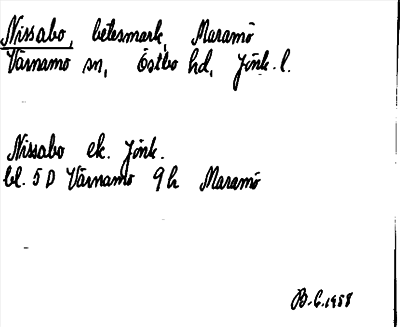 Nissabo, betesmark, Maramö
Värnamo sn, Östbo hd, Jönk. l.
Nissabo ek. Jönk.
bl. 5 D Värnamo 9 h Maramö
B. G. 1958